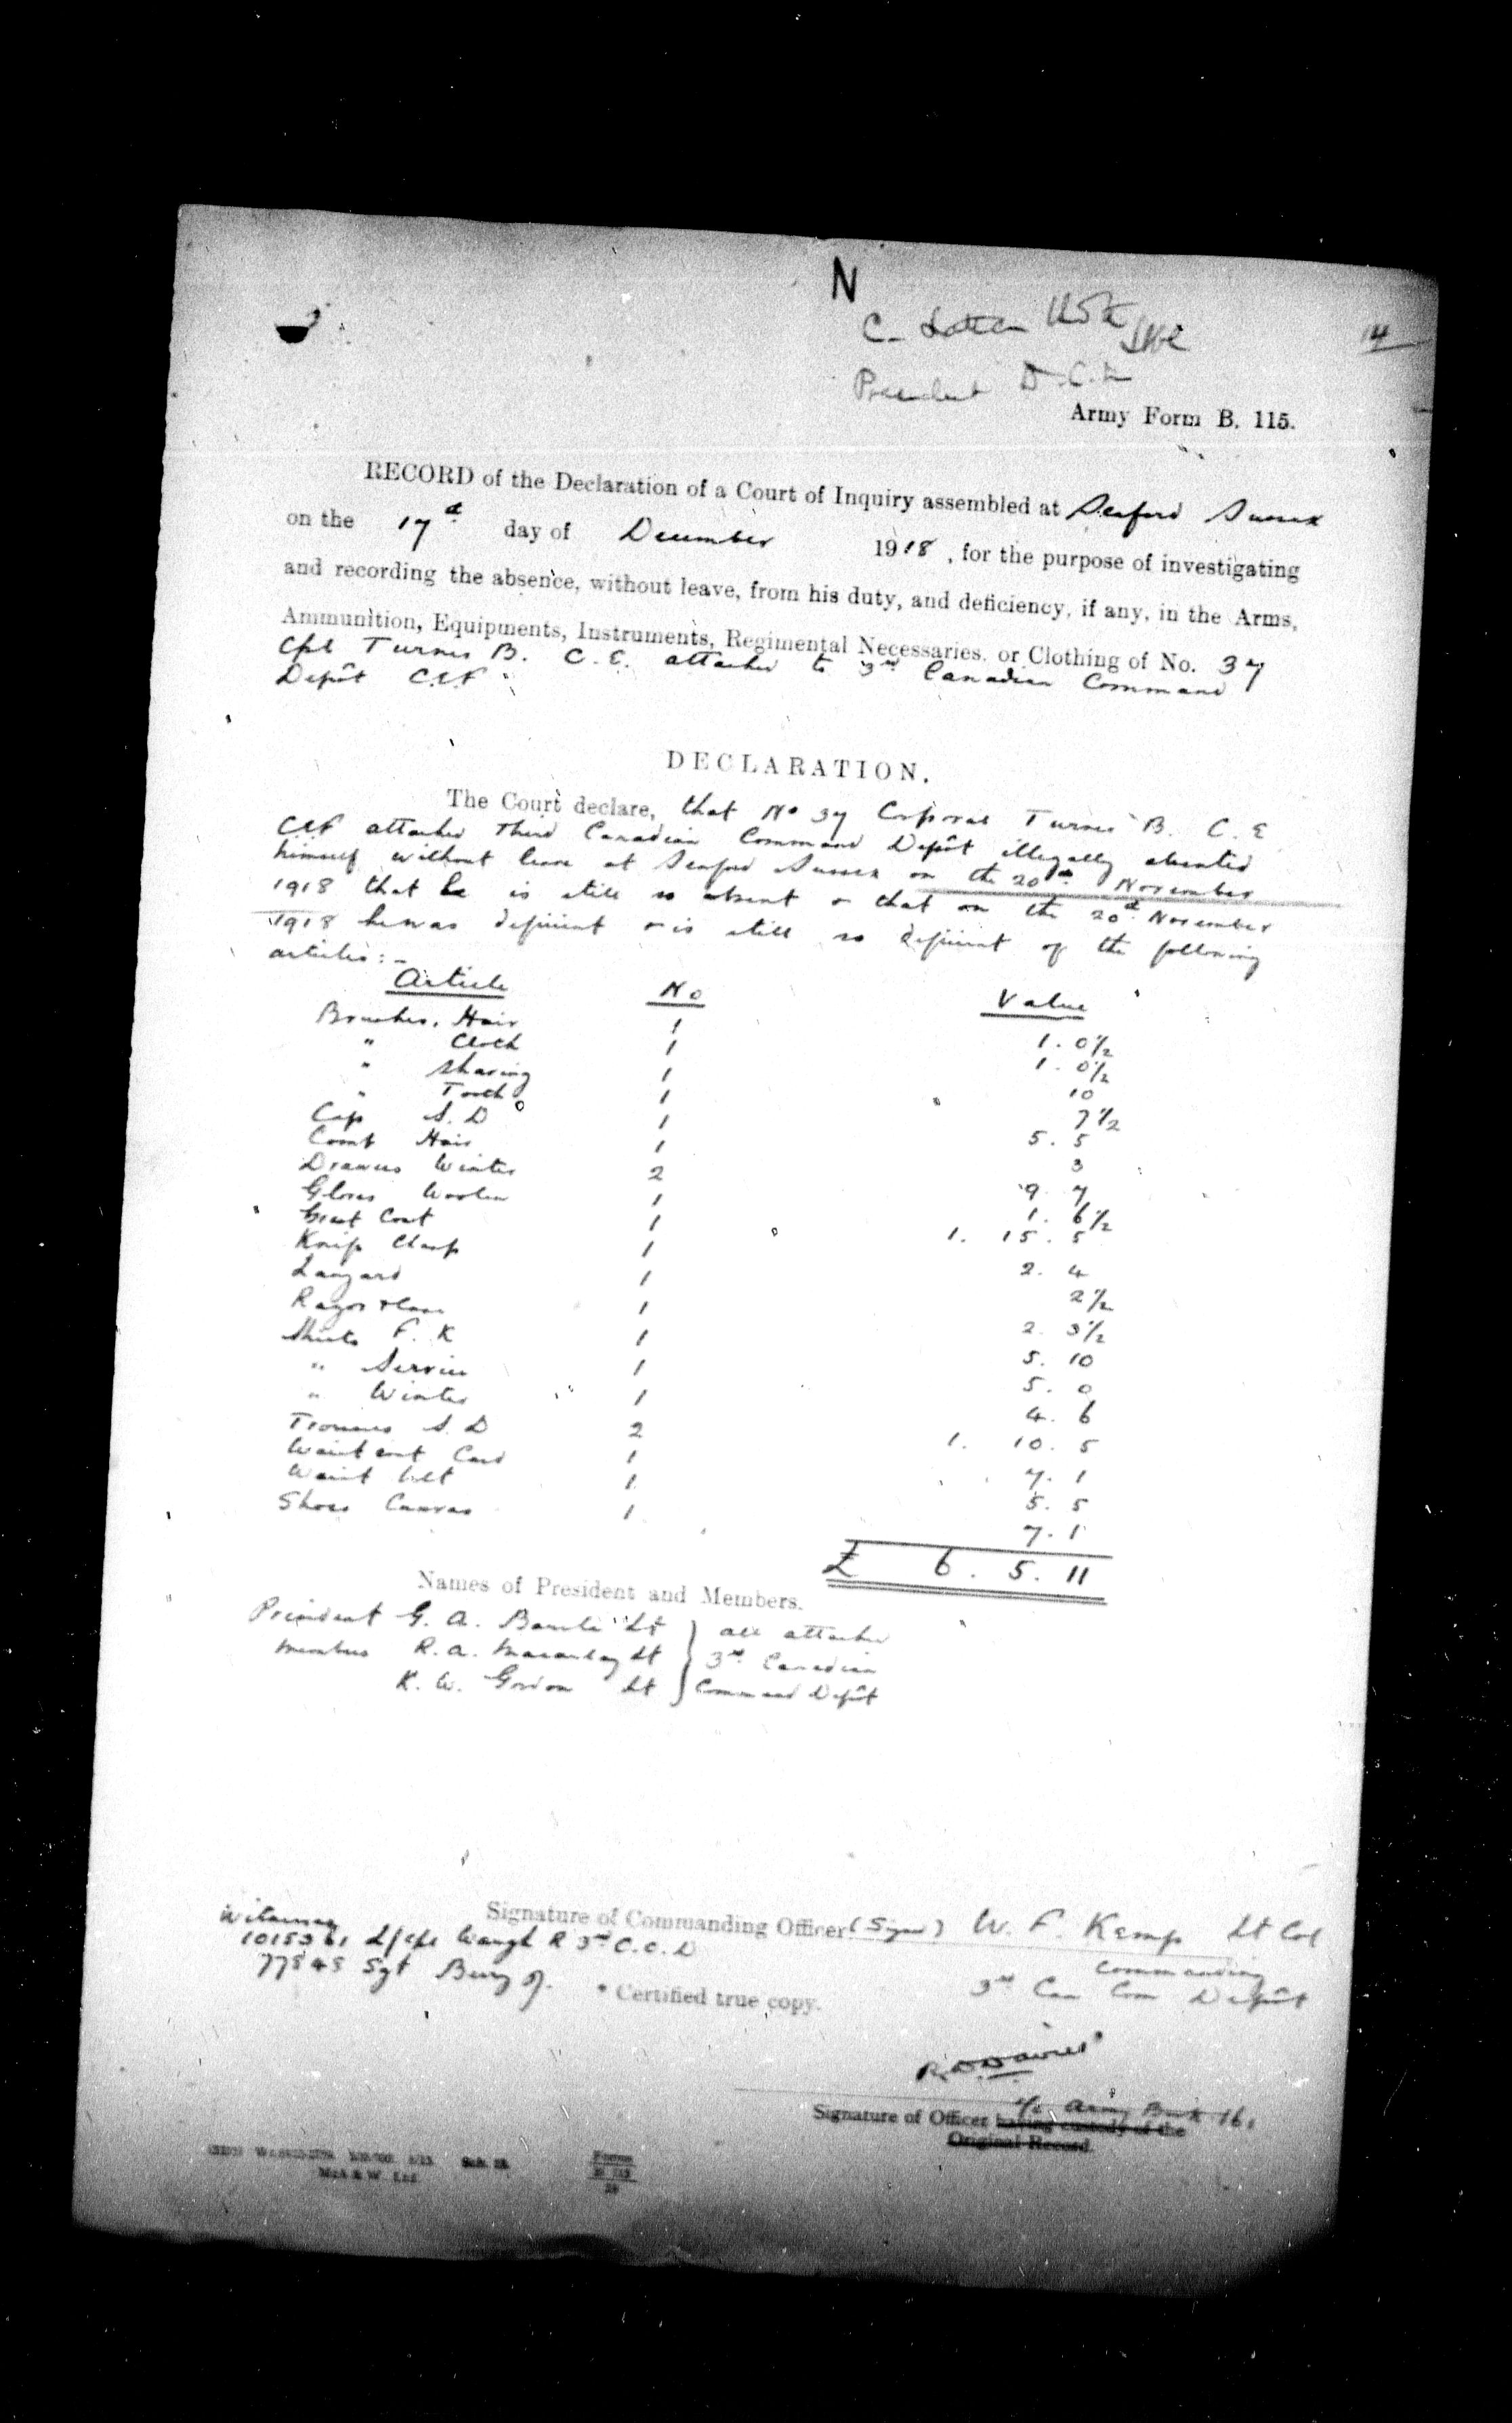 N
14
President D.C.M
Army Form B. 115.
RECORD of the Declaration of a Court of Inquiry assembled at Seaford Sussex
on the 17th day of December 1918, for the purpose of investigating
and recording the absence, without leave, from his duty, and deficiency, if any, in the Arms,
Ammunition, Equipments, Instruments, Regimental Necessaries, or Clothing of No. 37
Cpl Turner B. C.E. attached to 3rd Canadian Command
Depôt C.E.F
DECLARATION.
The Court declare, that No 37 Corporal Turner B. C.E
CEF attached Third Canadian Command Depôt illegally absented
himself without leave at Seaford Sussex on the 20th November
1918 that he is still so absent & that on the 20th November
1918 he was deficient & is still so deficient of the following
articles:-
Article No Value
Brushes, Hair 1 1. 0½
" Cloth 1 1. 0½
" Shaving 1 10
" Tooth 1 7½
Cap S.D 1 5. 5
Comb Hair 1 3
Drawers Winter 2 9. 7
Gloves Woolen 1 1. 6½
Great Coat 1 1. 15. 5
Knife Clasp 1 2. 4
Lanyard 1 2½
Razor & Case 1 2. 3½
Shirts F.K 1 5. 10
" Service 1 5. 0
" Winter 1 4. 6
Trousers S.D 2 1. 10. 5
Waistcoat Card 1 7. 1
Waist belt 1 5. 5
Shoes Canvas 1 7. 1
£ 6. 5. 11
Names of President and Members.
President G. A. Lt } all attached
Members R. A. Macaulay Lt } 3rd Canadian
K. W. Gordon Lt } Command Depôt
Signature of Commanding Officer (Signed) W. F. Kemp Lt Col
Commanding
3rd Can Com Depôt
Witnesses
1015361 L/Cpl Waugh R 3rd C.C.D
77848 Sgt Berry J.
* Certified true copy.
R.D. Davies
i/c Army Book 161
Signature of Officer having custody of the
Original Record.
Forms